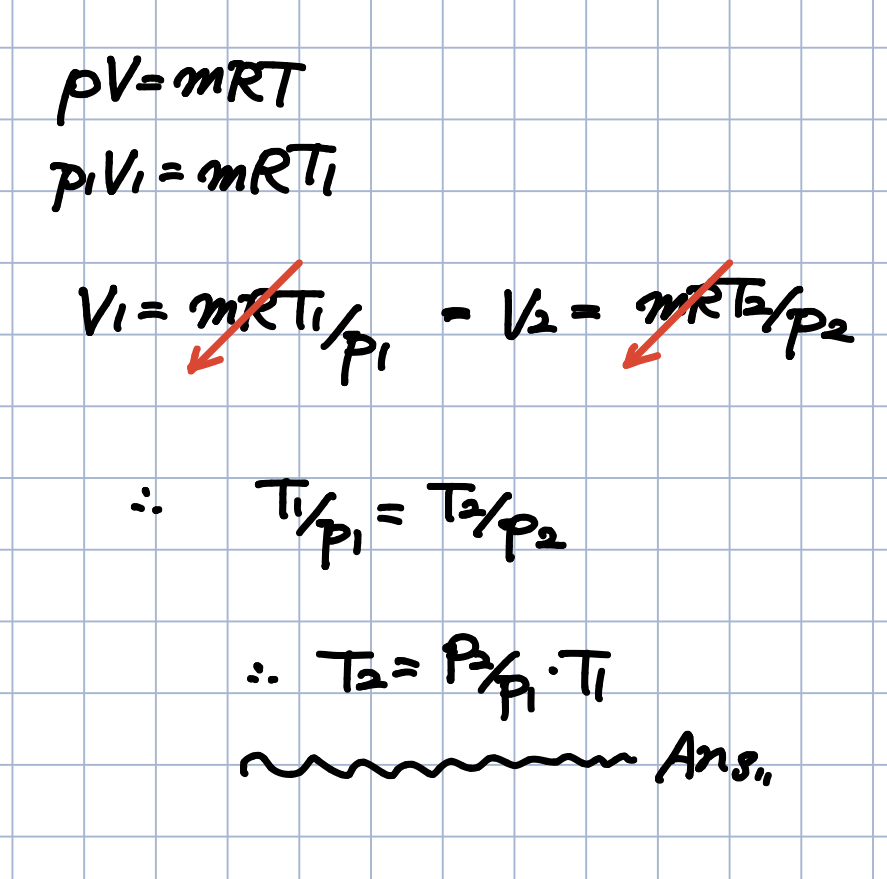 pV = mRT
p₁V₁ = mRT₁
V₁ = mRT₁/p₁ - V₂ = mRT₂/p₂
∴ T₁/p₁ = T₂/p₂
∴ T₂ = P₂/p₁ · T₁
Ans.,,